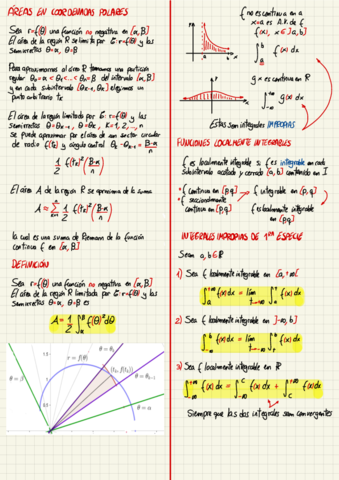 ÁREAS EN COORDENADAS POLARES
Sea r=f(θ) una función no negativa en [α,β]
El área de la región R se limita por G: r=f(θ) y las
semirrectas θ=α, θ=β
Para aproximarnos al área R tomamos una partición
regular θ₀=α<θ₁<...<θₙ=β del intervalo [α,β]
y en cada subintervalo [θₖ₋₁, θₖ] elegimos un
punto arbitrario tₖ
El área de la región limitada por G: r=f(θ) y las
semirrectas θ=θₖ₋₁, θ=θₖ, K=1, 2, ..., n
se puede aproximar por el área de un sector circular
de radio f(tₖ) y ángulo central θₖ-θₖ₋₁ = (β-α)/n
1/2 f(tₖ)² (β-α)/n
El área A de la región R se aproxima de la suma
A≈ Σ 1/2 f(tₖ)² (β-α)/n
la cual es una suma de Riemann de la función
continua f en [α,β]
DEFINICIÓN
Sea r=f(θ) una función no negativa en [α,β]
El área de la región R limitada por G: r=f(θ) y las
semirrectas θ=α, θ=β es
A = 1/2 ∫ f(θ)² dθ
1.5
1
0.5
r = f(θ)
θ = θₖ
(tₖ, f(tₖ))
θ = θₖ₋₁
θ = β
θ = α
f no es continua en a
x=a es A.V. de f
f(x), x∈]a,b]
∫ₐᵇ f(x) dx
g es continua en R
∫ g(x) dx
Estas son integrales IMPROPIAS
FUNCIONES LOCALMENTE INTEGRABLES
f es localmente integrable si f es integrable en cada
subintervalo acotado y cerrado [a,b] contenido en I
f continua en [p,q]
f integrable en [p,q]
f seccionalmente
continua en [p,q]
f es localmente integrable
en [p,q]
INTEGRALES IMPROPIAS DE 1ª ESPECIE
Sean a,b∈R
1) Sea f localmente integrable en [a,+∞[
∫ₐ^+∞ f(x)dx = lim t→+∞ ∫ₐᵗ f(x)dx
2) Sea f localmente integrable en ]-∞,b]
∫₋∞ᵇ f(x)dx = lim t→-∞ ∫ₜᵇ f(x)dx
3) Sea f localmente integrable en R
∫₋∞^+∞ f(x)dx = ∫₋∞ᶜ f(x)dx + ∫꜀^+∞ f(x)dx
Siempre que las dos integrales sean convergentes